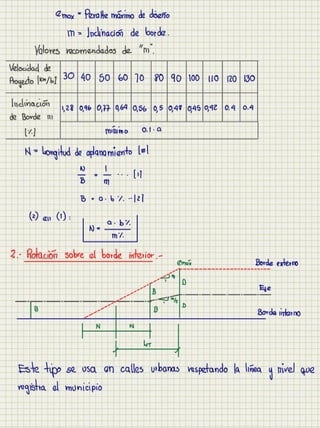 emax = Peralte máximo de diseño
m = Inclinación de borde.
Valores recomendados de "m".
Velocidad de Proyecto [km/h] 30 40 50 60 70 80 90 100 110 120 130
Inclinación de Borde m [%] 1,28 0,96 0,77 0,64 0,56 0,5 0,48 0,45 0,42 0.4 0.4
mínimo 0.1·a
N = Longitud de aplanamiento [m]
N/B = 1/m ... [1]
B = a · b % - [2]
(2) en (1):
N = a · b % / m %
2.- Rotación sobre el borde interior.-
emáx Borde externo
B D Eje
B B D Borde interno
N N
LT
Este tipo se usa en calles urbanas respetando la línea y nivel que
registra el municipio